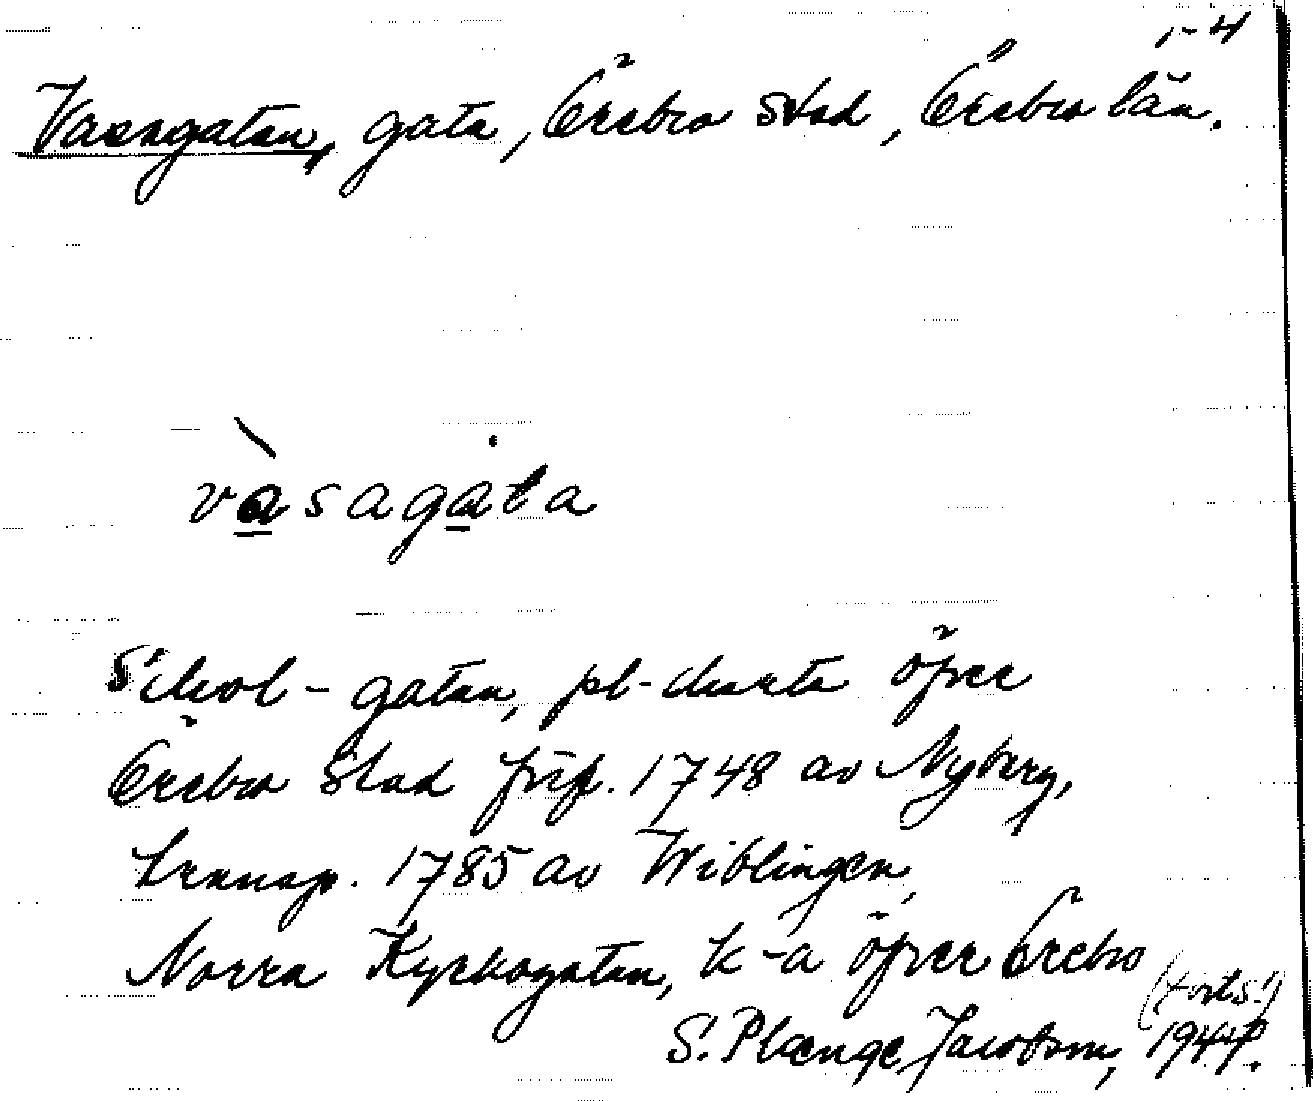 1-4
Vasagatan, gata, Örebro stad, Örebro län.
vàsagȧta
Skol-gatan, pl-charta öfver
Örebro Stad förf. 1748 av Nyberg,
transp. 1785 av Wiblingen,
Norra Kyrkogatan, k-a öfver Örebro
(forts.)
S. Plænge Jacobson, 1944.